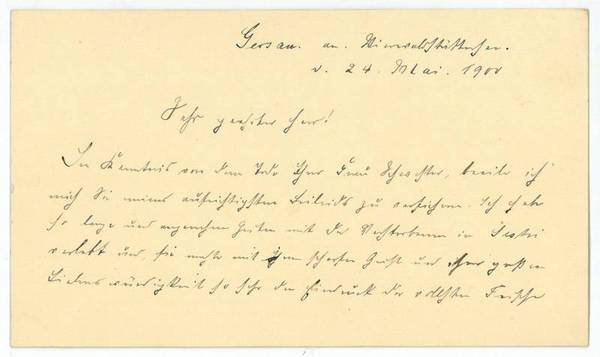 Gersau. am. Vierwaldstättersee.
d. 24. Mai. 1900
Sehr geehrter Herr!
In Kenntnis von dem Tode Ihrer Frau Schwester, beeile ich
mich Sie meines aufrichtigsten Beileids zu versichern. Ich habe
so lange und angenehme Zeiten mit der Verstorbenen in Sestri
verlebt und, sie machte mit ihrem scharfen Geist und ihrer großen
Liebenswürdigkeit so sehr den Eindruck der vollsten Frische